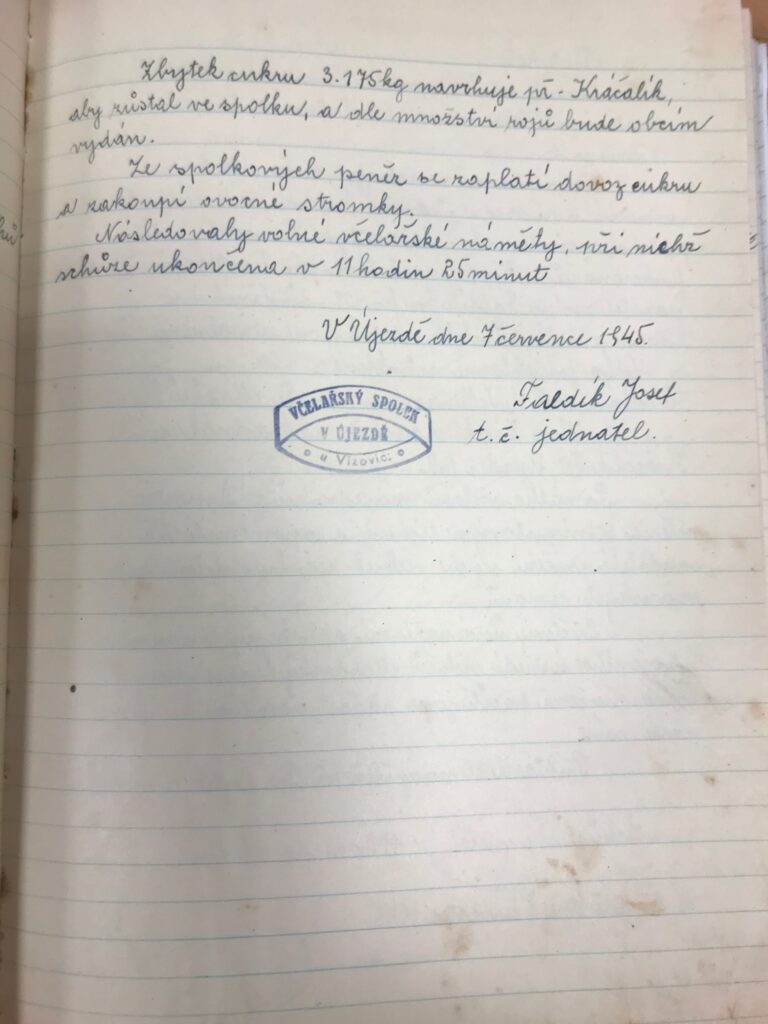 Zbytek cukru 3.175kg navrhuje př. Kráčalík,
aby zůstal ve spolku, a dle množství rojů bude obcím
vydán.
Ze spolkových peněz se zaplatí dovoz cukru
a zakoupí ovocné stromky.
Následovaly volné včelařské náměty, při nichž
schůze ukončena v 11hodin 25minut
V Újezdě dne 7července 1945.
Faldík Josef
t.č. jednatel.
VČELAŘSKÝ SPOLEK
V ÚJEZDĚ
u Vizovic